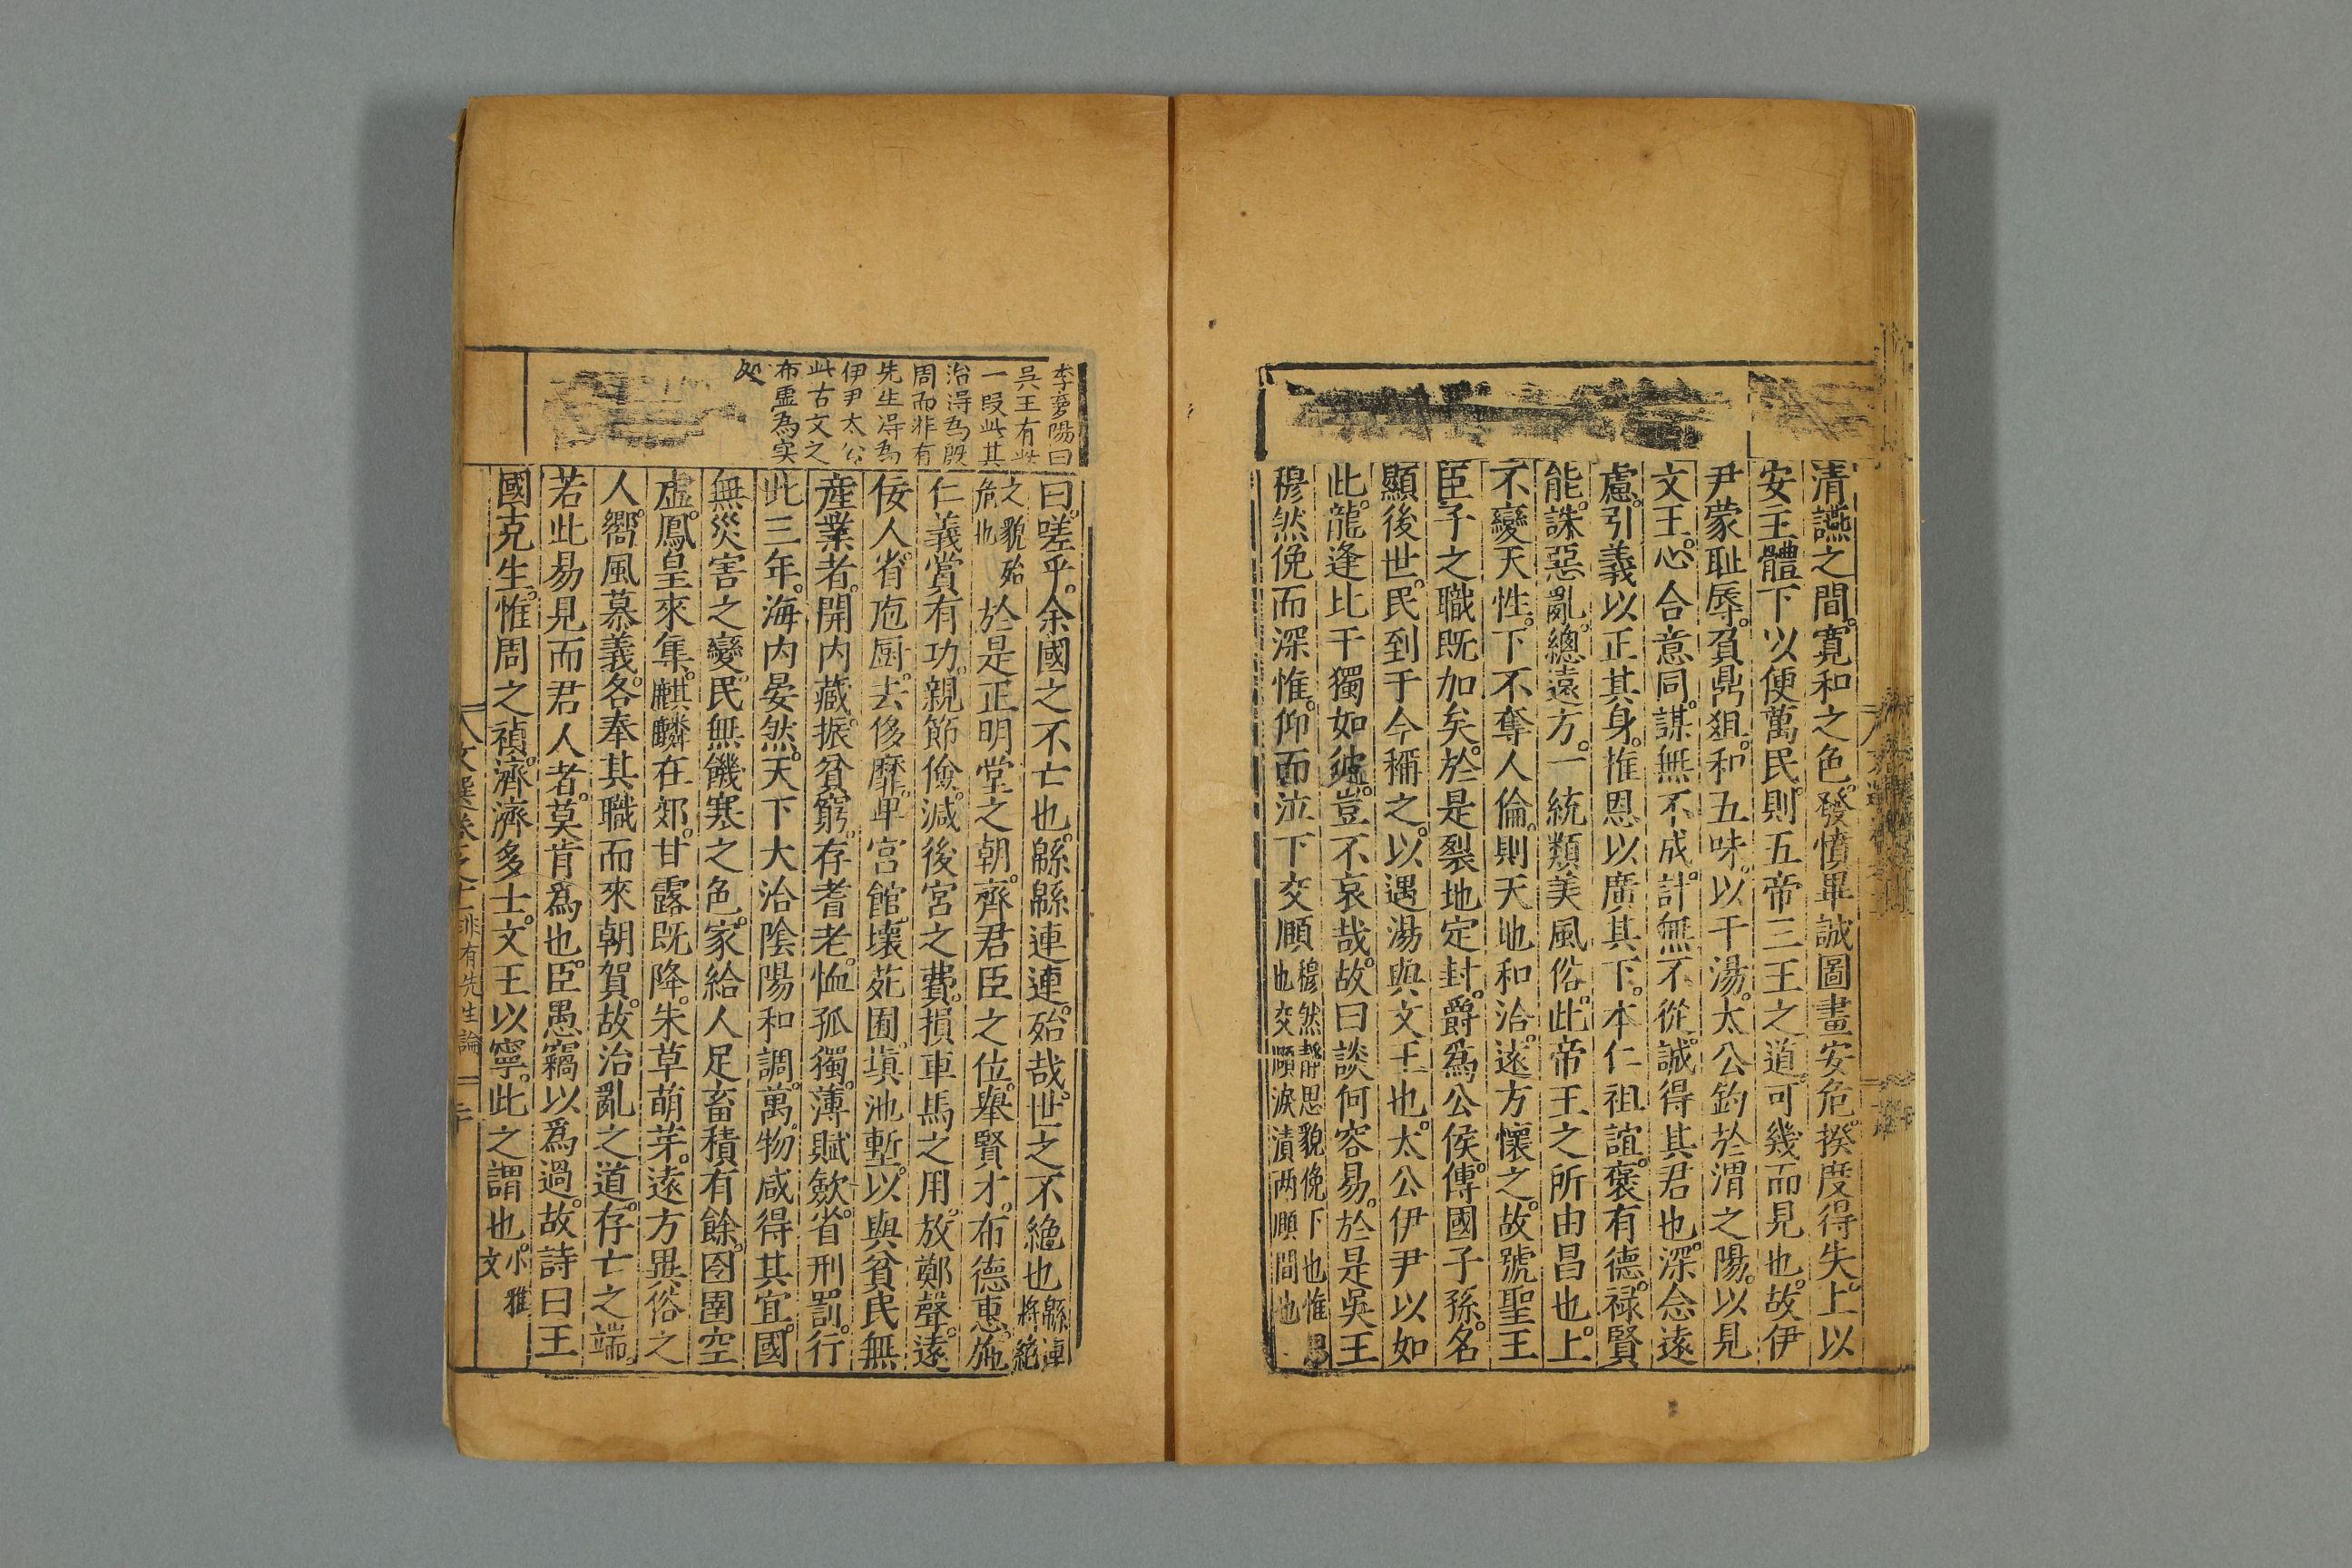 清讌之間。寬和之色。發憤畢誠圖畫安危。揆度得失。上以
安主體下以便萬民。則五帝三王之道可幾而見也。故伊
尹蒙耻辱。負鼎俎。和五味。以干湯。太公釣於渭之陽。以見
文王。心合意同。謀無不成。計無不從。誠得其君也。深念遠
慮。引義以正其身。推恩以廣其下。本仁祖誼。褒有德。禄賢
能。誅惡亂。總遠方。一統類美風俗。此帝王之所由昌也。上
不變天性。下不奪人倫。則天地和洽。遠方懷之。故號聖王
臣子之職既加矣。於是裂地定封。爵爲公侯。傳國子孫。名
顯後世。民到于今稱之。以遇湯與文王也。太公伊尹以如
此。龍逢比干獨如彼。豈不哀哉。故曰談何容易。於是吳王
穆然俛而深惟。仰而泣下交頤
穆然靜思貌俛下也惟思
也交頤淚漬两頤間也
李夢陽曰
吳王有此
一段此其
治得為既
周而非有
先生得為
伊尹太公
此古文之
布虛為实
処
曰。嗟乎。余國之不亡也。緜緜連連。殆哉。世之不絶也
緜連
將絶
之貌殆
危也
於是正明堂之朝。齊君臣之位。舉賢才。布德惠。施
仁義賞有功。親節儉。減後宮之費。損車馬之用。放鄭聲。遠
佞人。省庖厨。去侈靡。卑宮館。壞苑囿。塡池塹。以與貧民無
產業者。開内藏。振貧窮。存耆老。恤孤獨。薄賦歛。省刑罰。行
此三年。海内晏然。天下大治陰陽和調。萬物咸得其宜。國
無災害之變。民無饑寒之色。家給人足畜積有餘。囹圄空
虚。鳳皇來集。麒麟在郊。甘露既降。朱草萌芽。遠方異俗之
人。嚮風慕義。各奉其職而來朝賀。故治亂之道。存亡之端。
若此易見而君人者。莫肯爲也。臣愚竊以爲過。故詩曰王
國克生。惟周之禎。濟濟多士。文王以寧。此之謂也。
小雅
文
文選卷之十 非有先生論